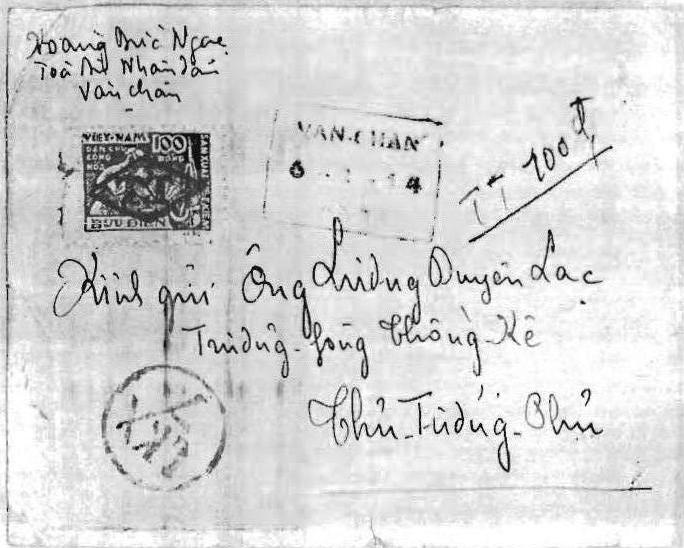 Hoàng Đức Ngọc
Toà Án Nhân dân
Văn chấn
VIỆT-NAM 100
DÂN CHỦ ĐỒNG
CỘNG
HÒA
SẢN XUẤT
BƯU ĐIỆN
VAN-CHAN
TT 100đ
Kính gửi Ông Lương Duyên Lạc
Trưởng-phòng Thống-Kê
Thủ-Tướng-Phủ